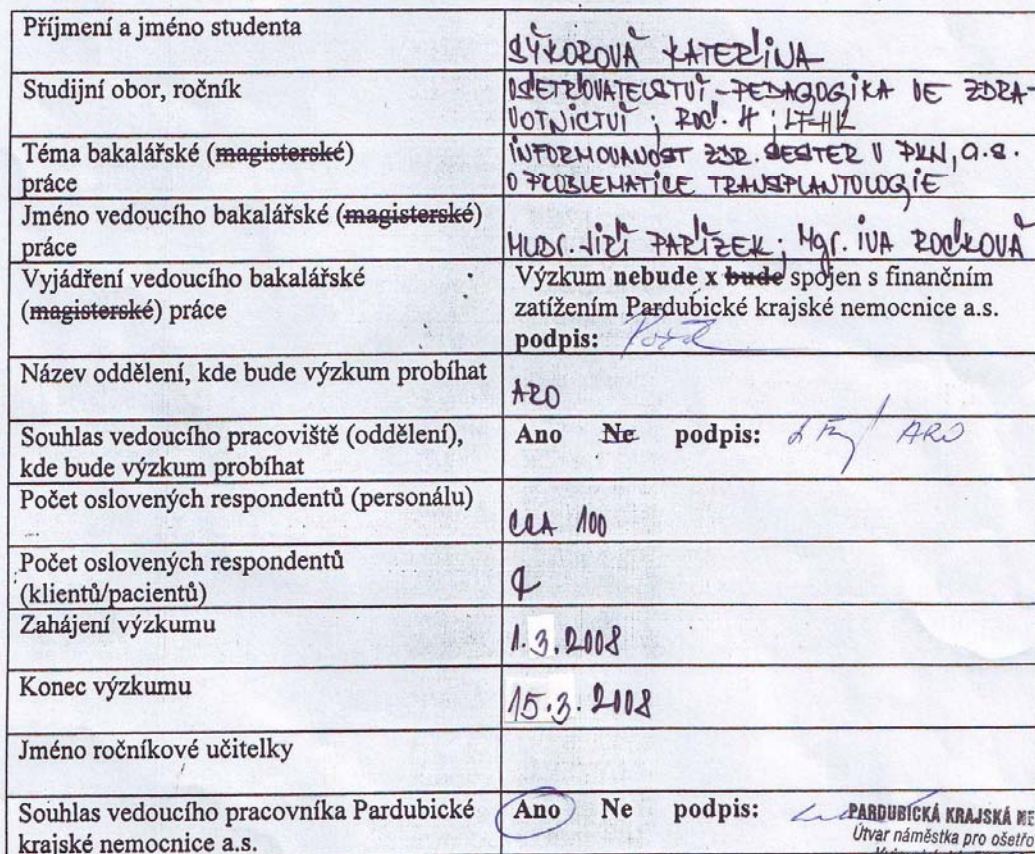 Příjmení a jméno studenta
SÝKOROVÁ KATEŘINA
Studijní obor, ročník
OŠETŘOVATELSTVÍ - PEDAGOGIKA VE ZDRA-
VOTNICTVÍ ; ROČ. 4 ;
Téma bakalářské (magisterské)
práce
INFORMOVANOST ZDR. SESTER V PKN, a.s.
O PROBLEMATICE TRANSPLANTOLOGIE
Jméno vedoucího bakalářské (magisterské)
práce
MUDr. JIŘÍ PAŘÍZEK ; Mgr. IVA ROČKOVÁ
Vyjádření vedoucího bakalářské
(magisterské) práce
Výzkum nebude x bude spojen s finančním
zatížením Pardubické krajské nemocnice a.s.
podpis:
Název oddělení, kde bude výzkum probíhat
ARO
Souhlas vedoucího pracoviště (oddělení),
kde bude výzkum probíhat
Ano Ne podpis: ARO
Počet oslovených respondentů (personálu)
CCA 100
Počet oslovených respondentů
(klientů/pacientů)
Zahájení výzkumu
1.3.2008
Konec výzkumu
15.3.2008
Jméno ročníkové učitelky
Souhlas vedoucího pracovníka Pardubické
krajské nemocnice a.s.
Ano Ne podpis:
PARDUBICKÁ KRAJSKÁ NE
Útvar náměstka pro ošetřo